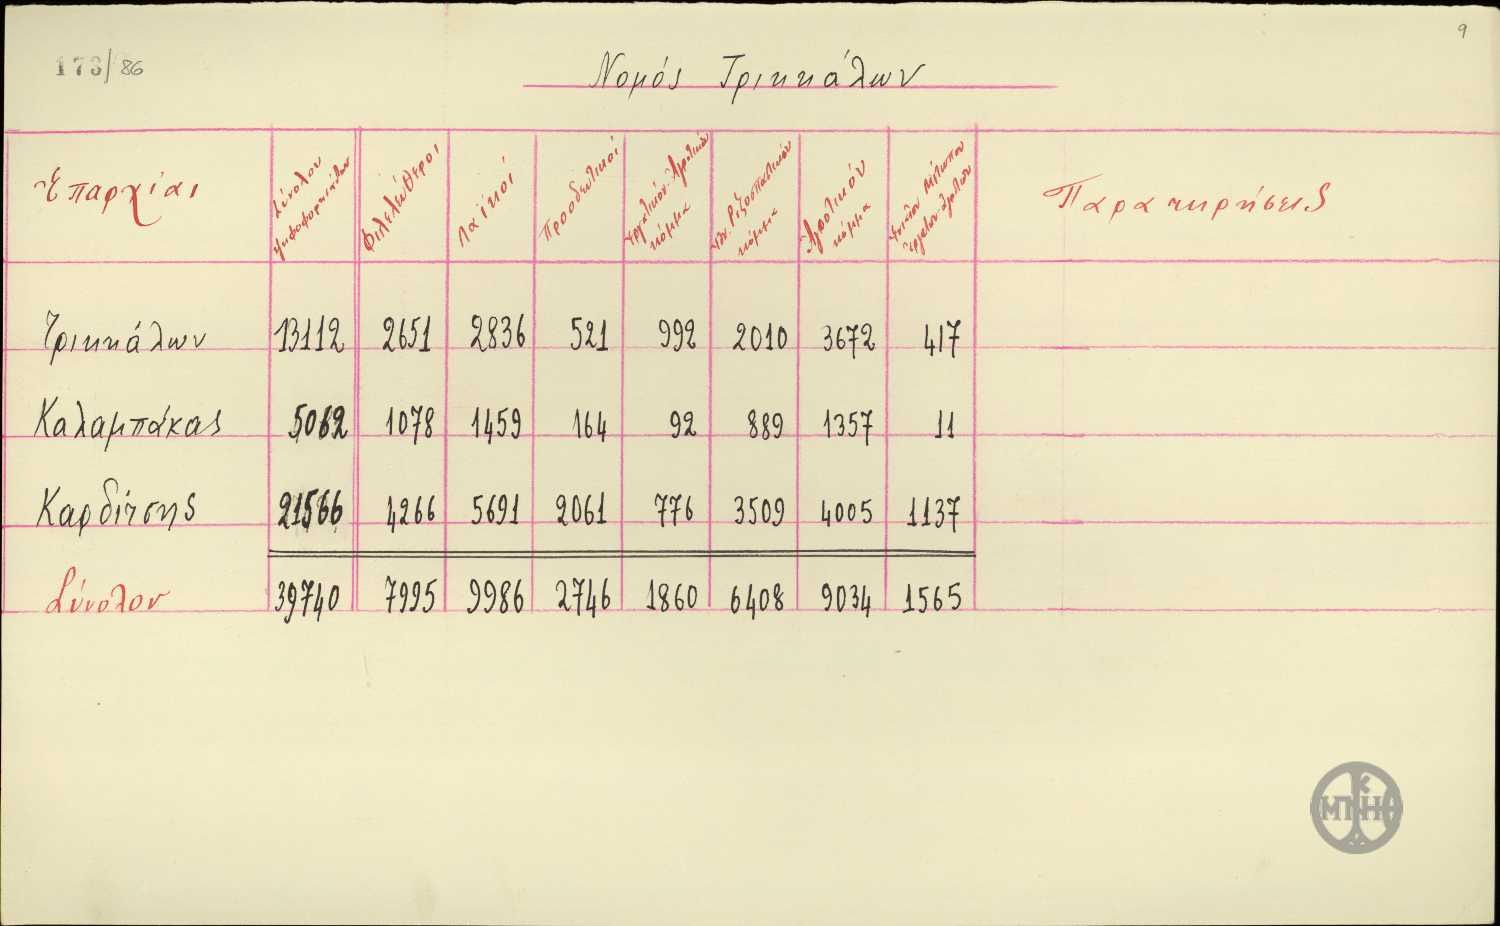 9
173/86
Νομός Τρικκάλων
Ἐπαρχίαι Σύνολον ψηφοφορησάντων Φιλελεύθεροι Λαϊκοί Προοδευτικοί Ἐργατικόν-Ἀγροτικόν κόμμα Ἐθν. Ριζοσπαστικόν κόμμα Ἀγροτικόν κόμμα Ἑνιαῖον Μέτωπον Ἐργατῶν Ἀγροτῶν Παρατηρήσεις
Τρικκάλων 13112 2651 2836 521 992 2010 3672 417
Καλαμπάκας 5062 1078 1459 164 92 889 1357 11
Καρδίτσης 21566 4266 5691 2061 776 3509 4005 1137
Σύνολον 39740 7995 9986 2746 1860 6408 9034 1565
ΜΠΚΗ